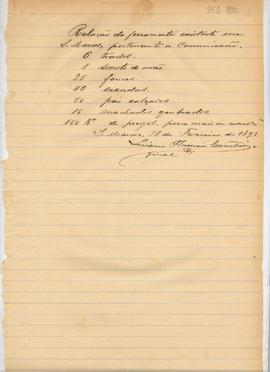 Relação da ferramenta existente em
S. Marcos, pertencente a Commissão.
6 trados.
1 serrote de mão
25 fouces
48 enxadas.
50 pás calçadas
15 machados quebrados.
150 Kos de pregos, pouco mais ou menos.
S. Marcos, 28 de Fevereiro de 1893
Luciano
Fiscal